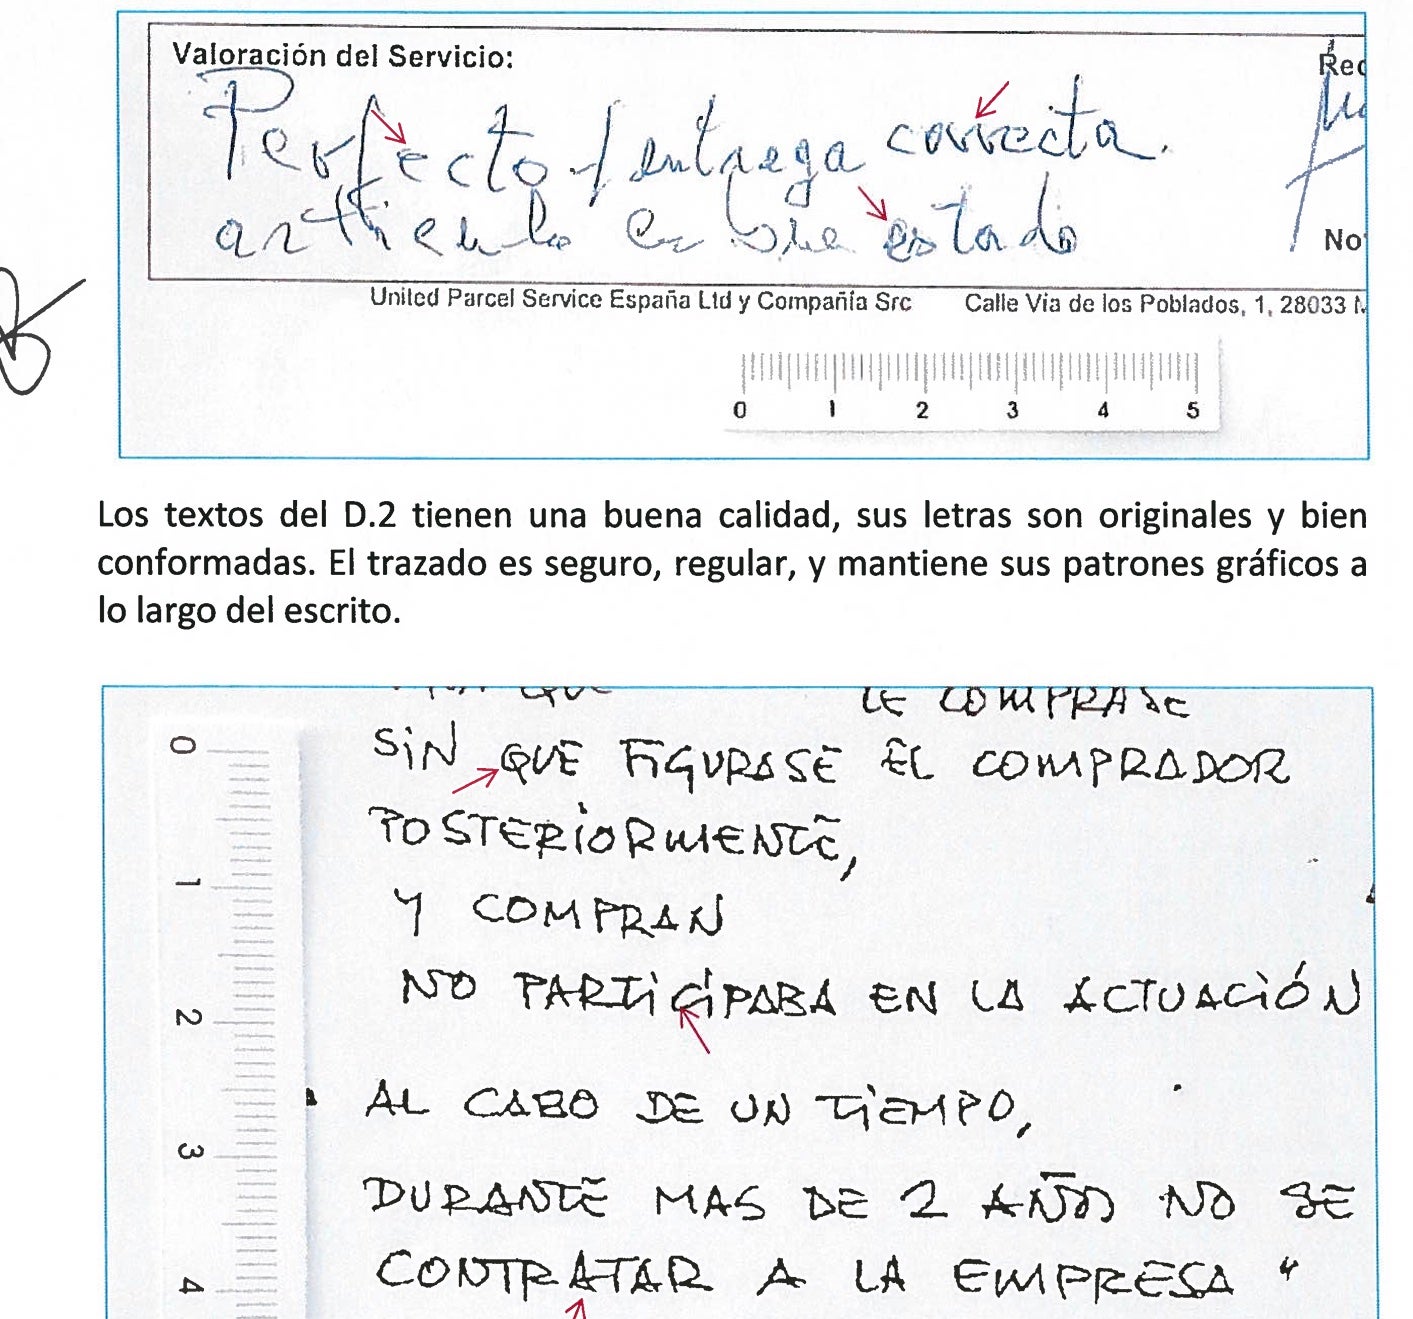 Valoración del Servicio:
Rec
Perfecto / entrega correcta.
en estado
No
United Parcel Service España Ltd y Compañía Src Calle Vía de los Poblados, 1, 28033 M
0 1 2 3 4 5
Los textos del D.2 tienen una buena calidad, sus letras son originales y bien
conformadas. El trazado es seguro, regular, y mantiene sus patrones gráficos a
lo largo del escrito.
LE COMPRASE
SIN QUE FIGURASE EL COMPRADOR
POSTERIORMENTE,
Y COMPRAN
NO PARTICIPABA EN LA ACTUACIÓN
AL CABO DE UN TIEMPO,
DURANTE MAS DE 2 AÑOS NO SE
CONTRATAR A LA EMPRESA "
0
1
2
3
4